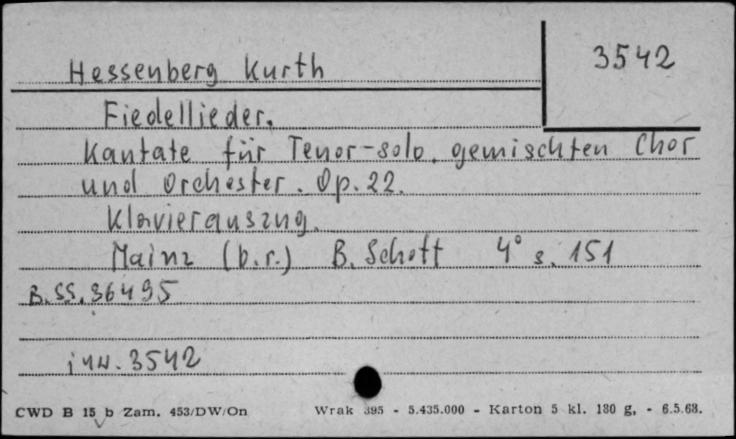 3542
Hessenberg Kurth
Fiedellieder.
Kantate für Tenor-solo, gemischten Chor
und Orchester. Op. 22.
Klavierauszug.
Mainz (b.r.) B. Schott 4° s. 151
B.SS.36495
inw. 3542
CWD B 15 b Zam. 453/DW/On Wrak 395 - 5.435.000 - Karton 5 kl. 180 g, - 6.5.68.